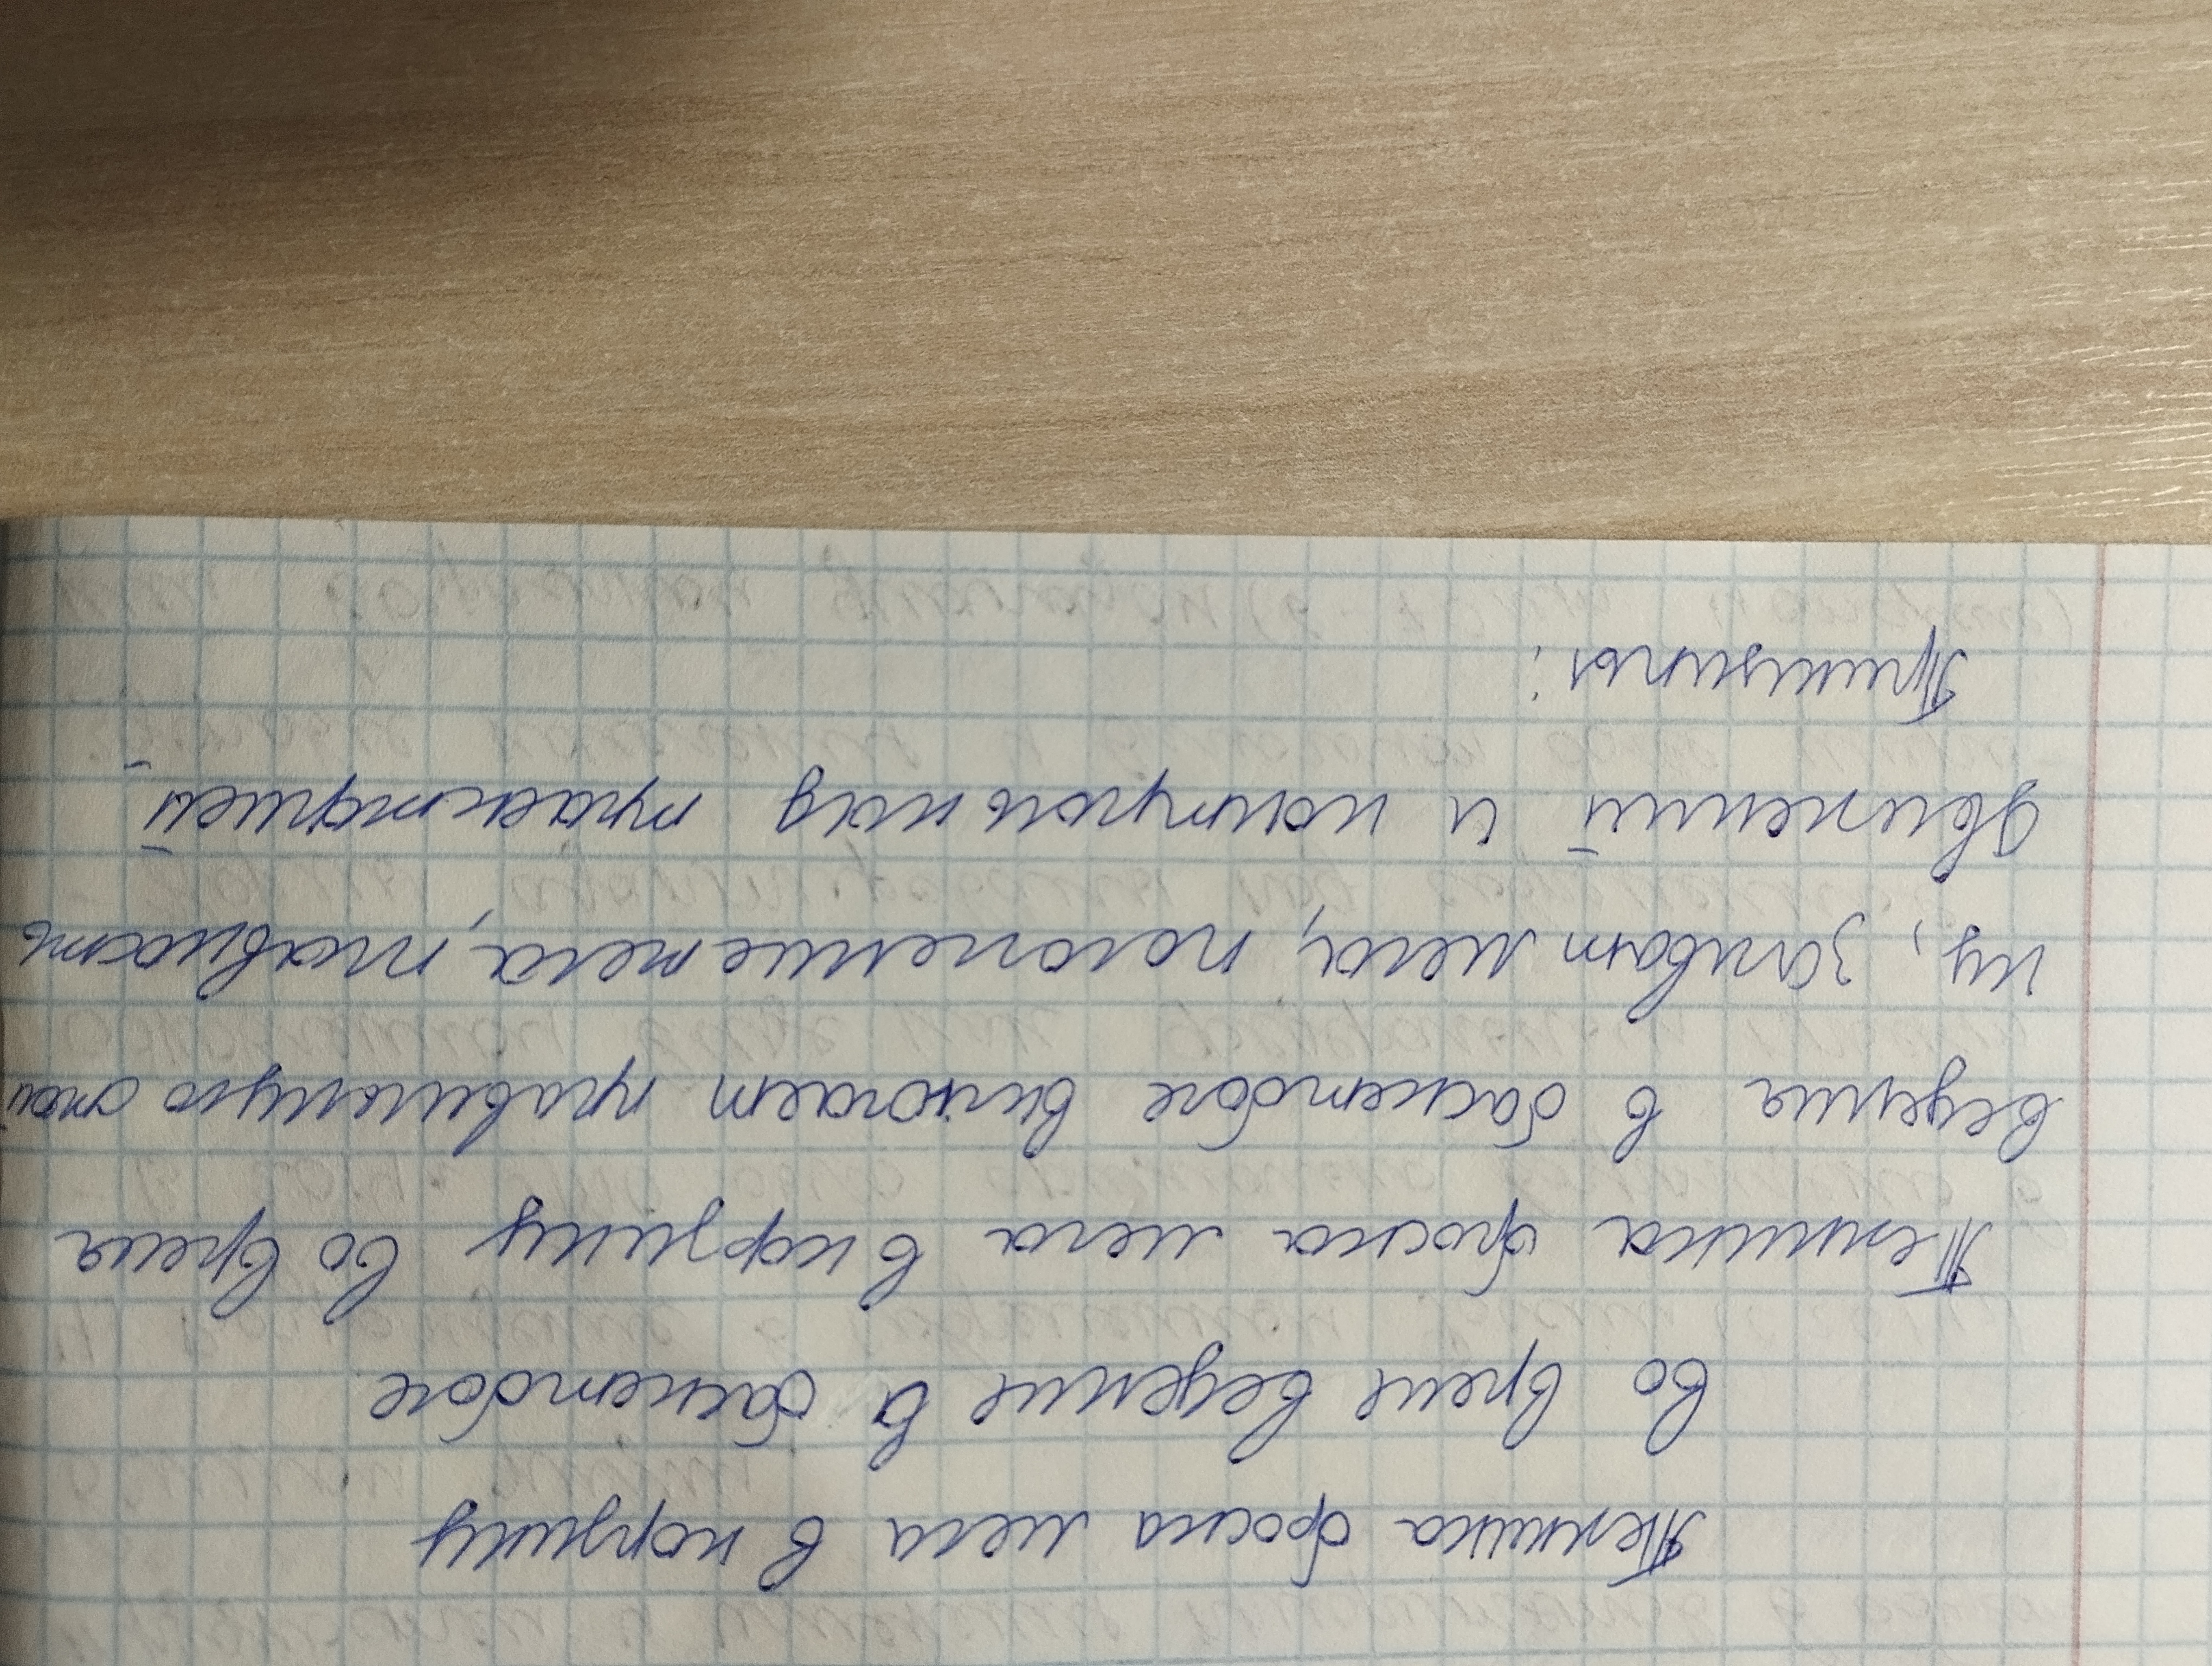 Техника броска мяча в корзину
во время ведение в баскетболе
Техника броска мяча в корзину во время
ведения в баскетболе включает правильную стой
ку, захват мяча, положение тела, плавность
движений и контроль над траекторией
Принципы: